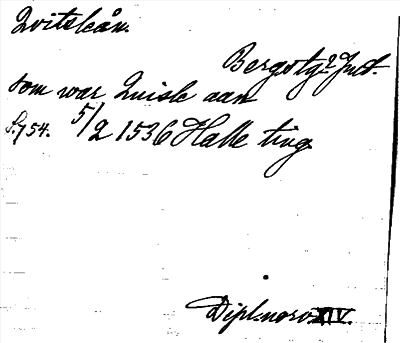 Qvitskån.
Bergolg? Just.
som war Quisle aan
S.754. 5/2 1536 Halle ting
Dipl.norv. XIV.